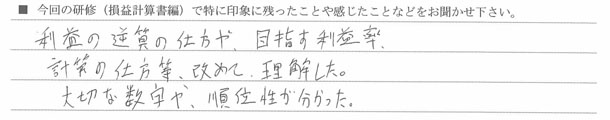 ■ 今回の研修（損益計算書編）で特に印象に残ったことや感じたことなどをお聞かせ下さい。
利益の逆算の仕方や、目指す利益率、
計算の仕方等、改めて、理解した。
大切な数字や、順位性が分かった。